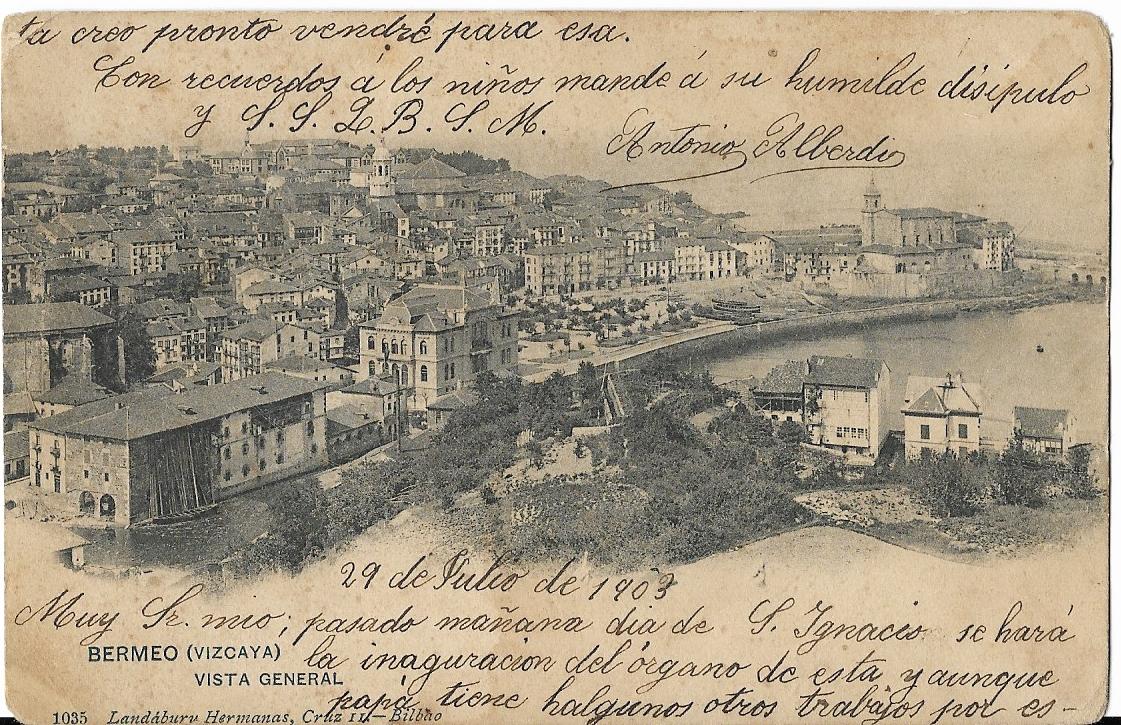 ta creo pronto vendré para esa.
Con recuerdos á los niños mande á su humilde disípulo
y S. S. Q. B. S. M.
Antonio Alberdi
29 de Julio de 1903
Muy Sr. mio; pasado mañana dia de S. Ignacio se hará
BERMEO (VIZCAYA)
la inaguracion del órgano de esta y aunque
VISTA GENERAL
papá tiene halgunos otros trabajos por es-
1035 Landáburu Hermanas, Cruz 11.—Bilbao